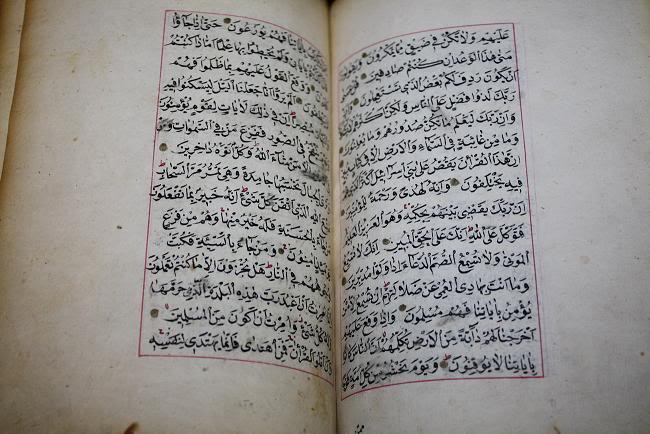 عليهم ولا تكن في ضيق مما يمكرون ويقولون
متى هذا الوعد ان كنتم صادقين
ان يكون ردف لكم بعض الذي تستعجلون
ربك لذو فضل على الناس ولكن
وان ربك ليعلم ما تكن صدورهم وما يعلنون
وما من غائبة في السماء والارض الا في
ان هذا القرآن يقص على بني اسرائيل اكثر
فيه يختلفون وانه لهدى ورحمة للمؤمنين
ان ربك يقضي بينهم بحكمه وهو العزيز
فتوكل على الله انك على الحق المبين انك لا تسمع
الموتى ولا تسمع الصم الدعاء اذا ولوا مدبرين
وما انت بهادي العمي عن ضلالتهم ان تسمع
يؤمن باياتنا فهم مسلمون واذا وقع عليهم
اخرجنا لهم دابة من الارض تكلمهم ان الناس كانوا
باياتنا لا يوقنون ويوم نحشر من كل امة فوجا
باياتنا فهم يوزعون حتى اذا جاؤا
باياتي ولم تحيطوا بها علما اماذا كنتم
ووقع القول عليهم بما ظلموا فهم
الم يروا انا جعلنا الليل ليسكنوا فيه
مبصرا ان في ذلك لايات لقوم يؤمنون
في الصور ففزع من في السموات ومن
من شاء الله وكل اتوه داخرين
تحسبها جامدة وهي تمر مر السحاب
الله الذي اتقن كل شيء انه خبير بما تفعلون
بالحسنة فله خير منها وهم من فزع
امنون ومن جاء بالسيئة فكبت
وجوههم في النار هل تجزون الا ما كنتم تعملون
ان اعبد رب هذه البلدة الذي حرمها
وله كل شيء وامرت ان اكون من المسلمين
وان اتلو القرآن فمن اهتدى فانما يهتدي لنفسه